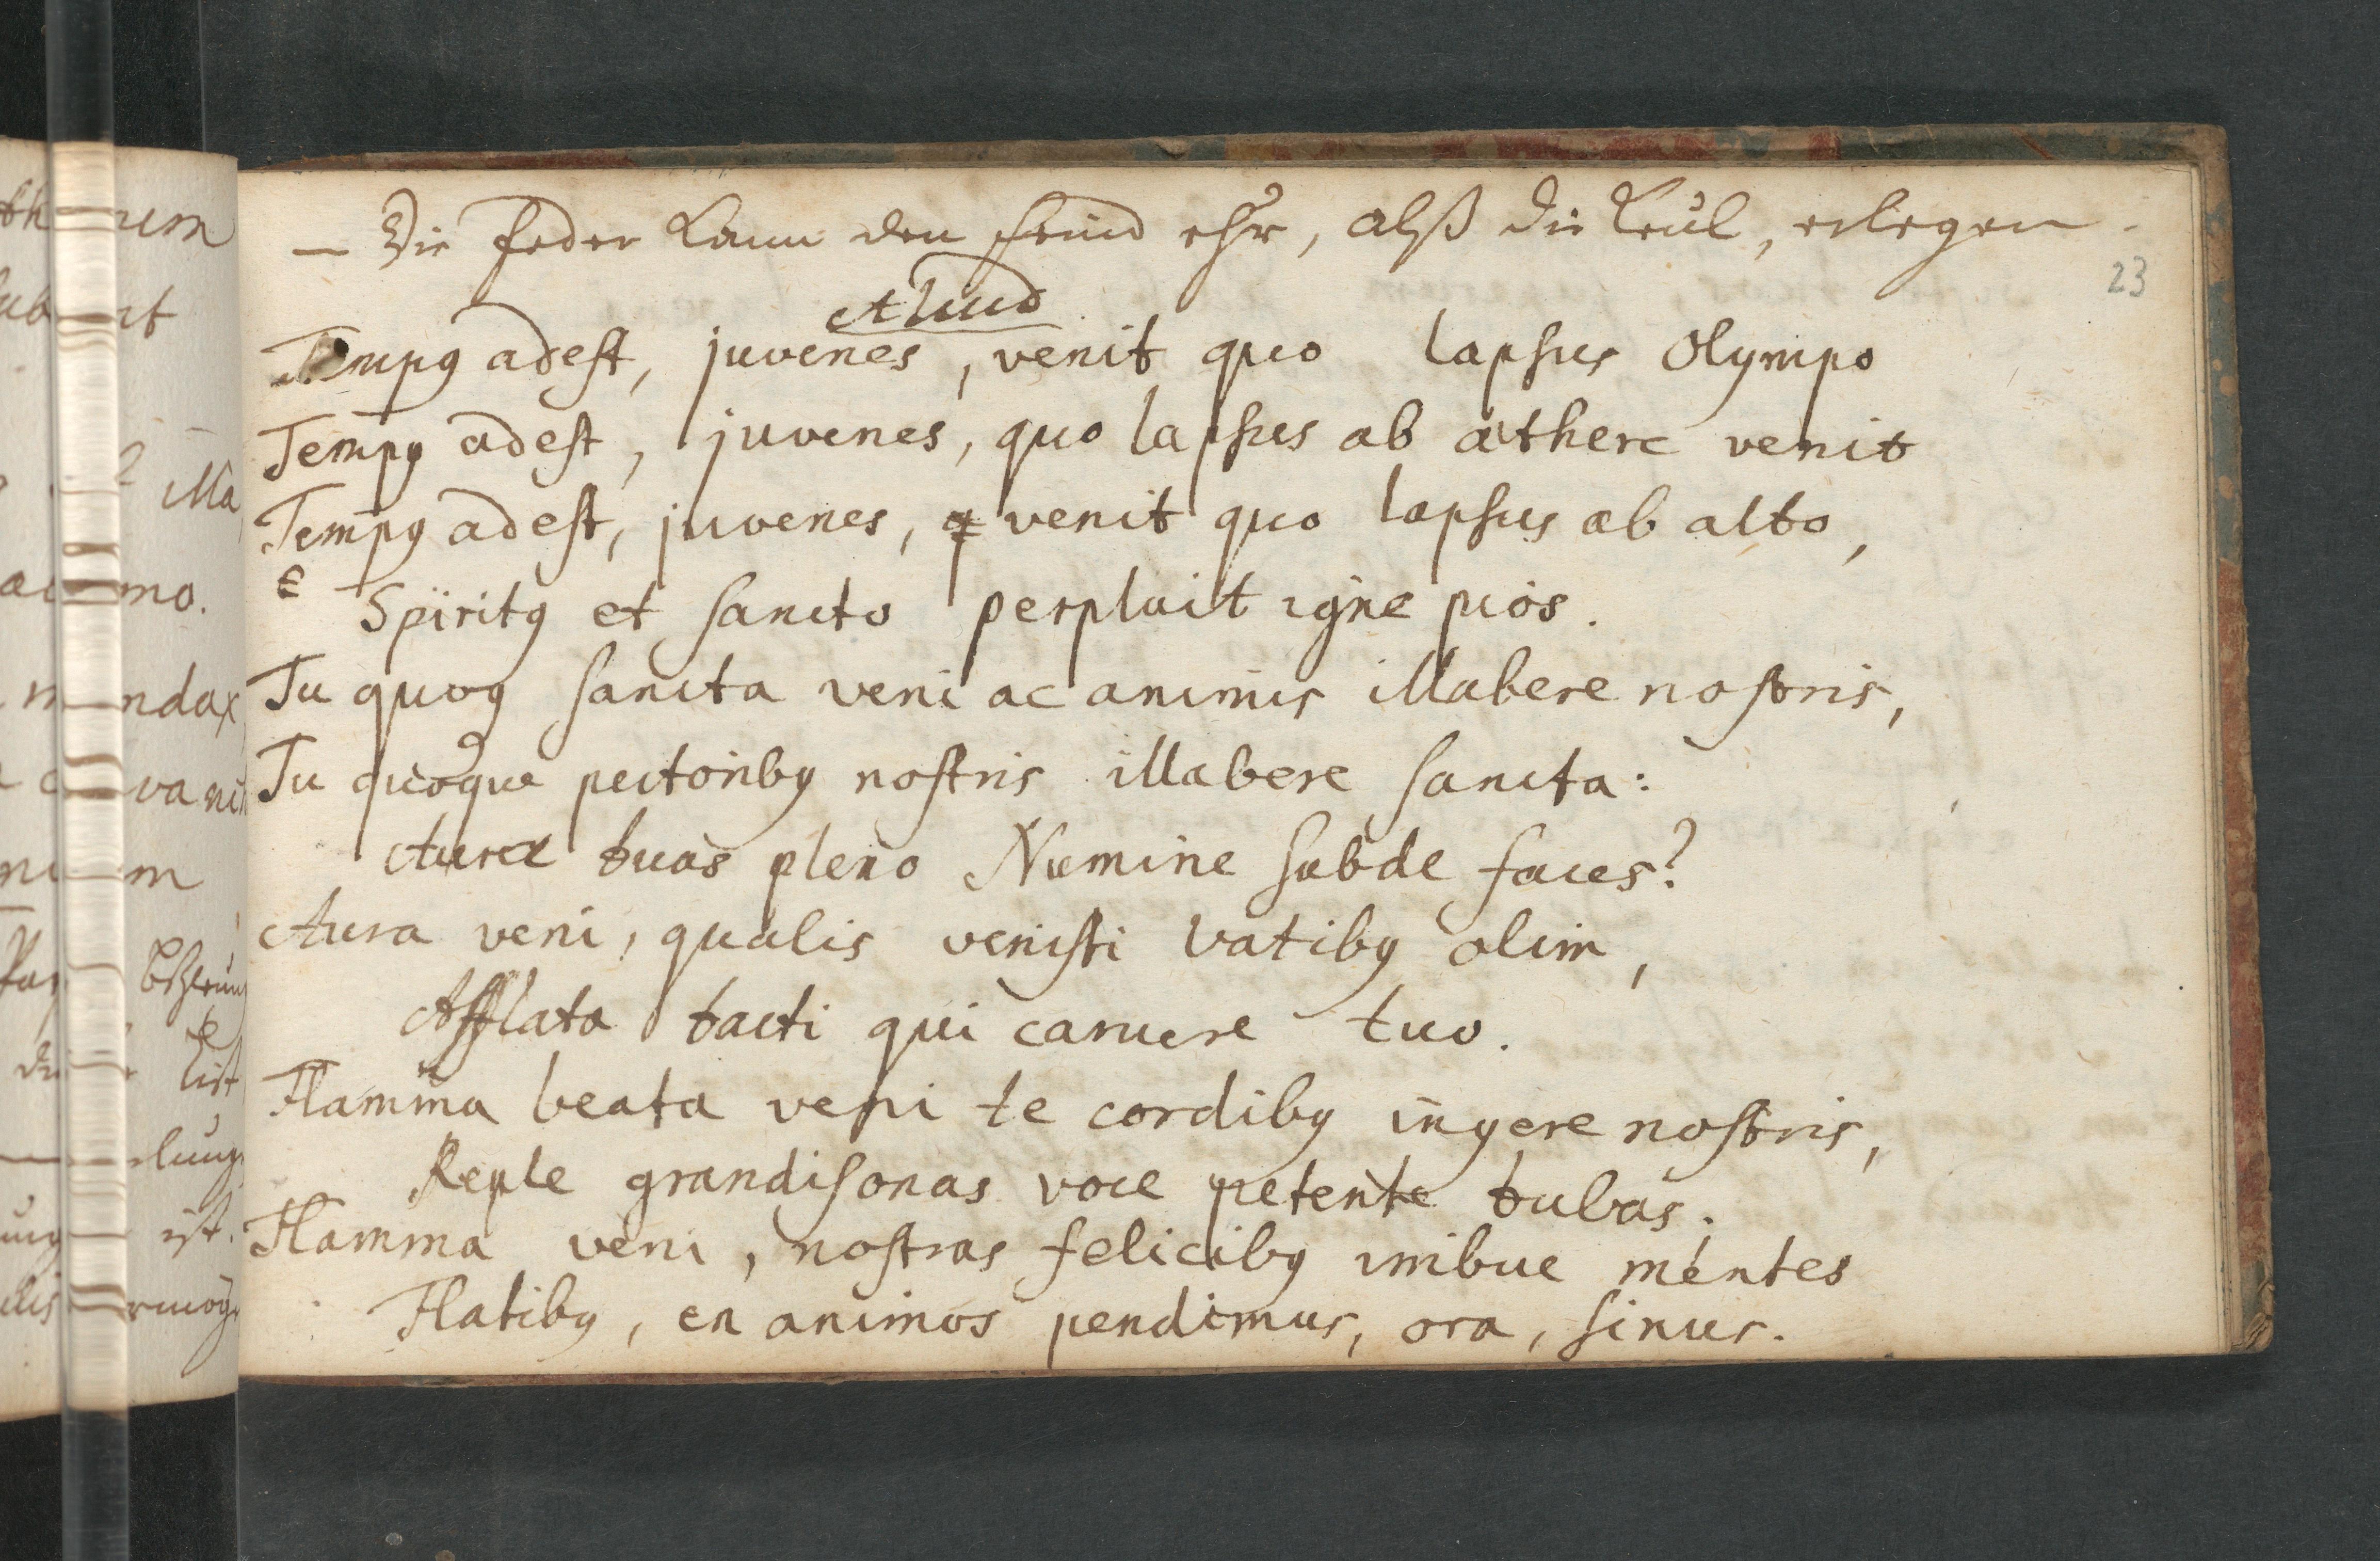 — Die Feder kann den Feind ehr, alß die Keül, erlegen.
23
Aliud
Tempꝰ adest, juvenes, venit quo lapsus Olympo
Tempꝰ adest, juvenes, quo lapsus ab æthere venit
Tempꝰ adest, juvenes, venit quo lapsus ab alto,
Spiritꝰ et sancto perpluit igne pios.
Tu quoqꝫ sancta veni ac animis illabere nostris,
Tu quoque pectoribꝰ nostris illabere sancta:
tuas pleno Numine subde faces?
Aura veni, qualis venisti vatibꝰ olim,
Afflata tacti qui canuere tuo.
Flamma beata veni te cordibꝰ ingere nostris,
Reple grandisonas voce petente tubas.
Flamma veni, nostras felicibꝰ imbue mentes
Flatibꝰ, en animos pendimus, ora, sinus.